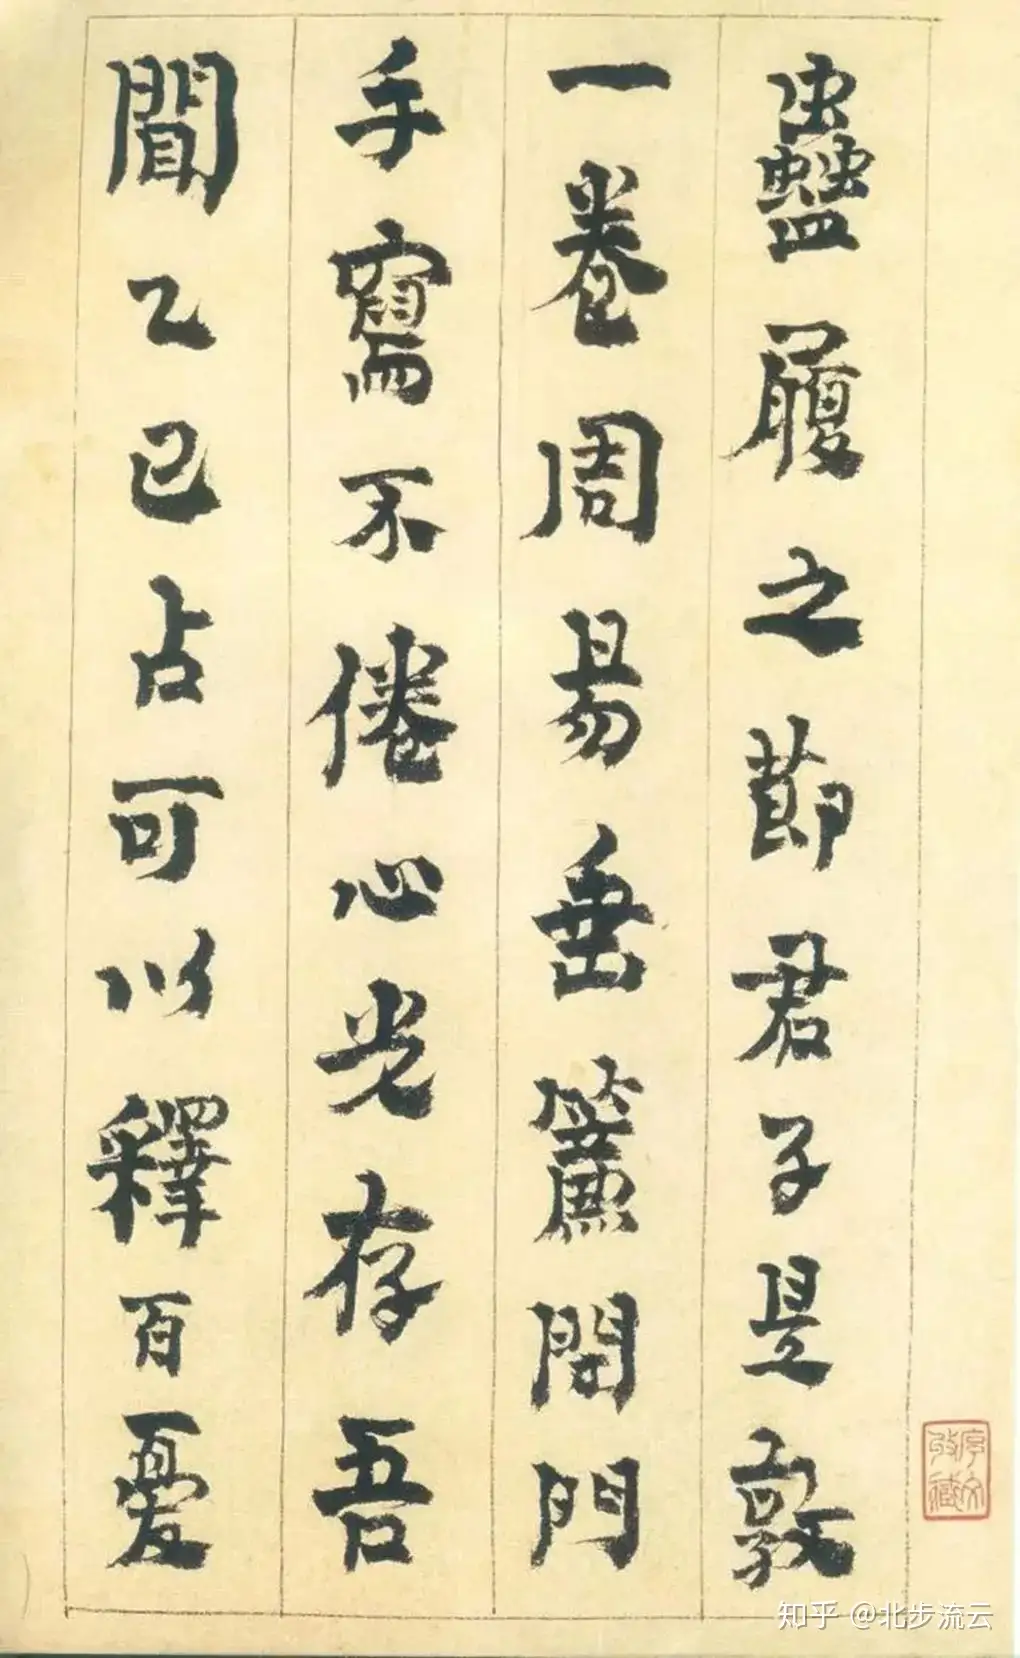 蠱履之節君子是敦
一卷周易垂簾閉門
手寫不倦心光存吾
聞乙巳占可以釋百憂
知乎 @北步流云